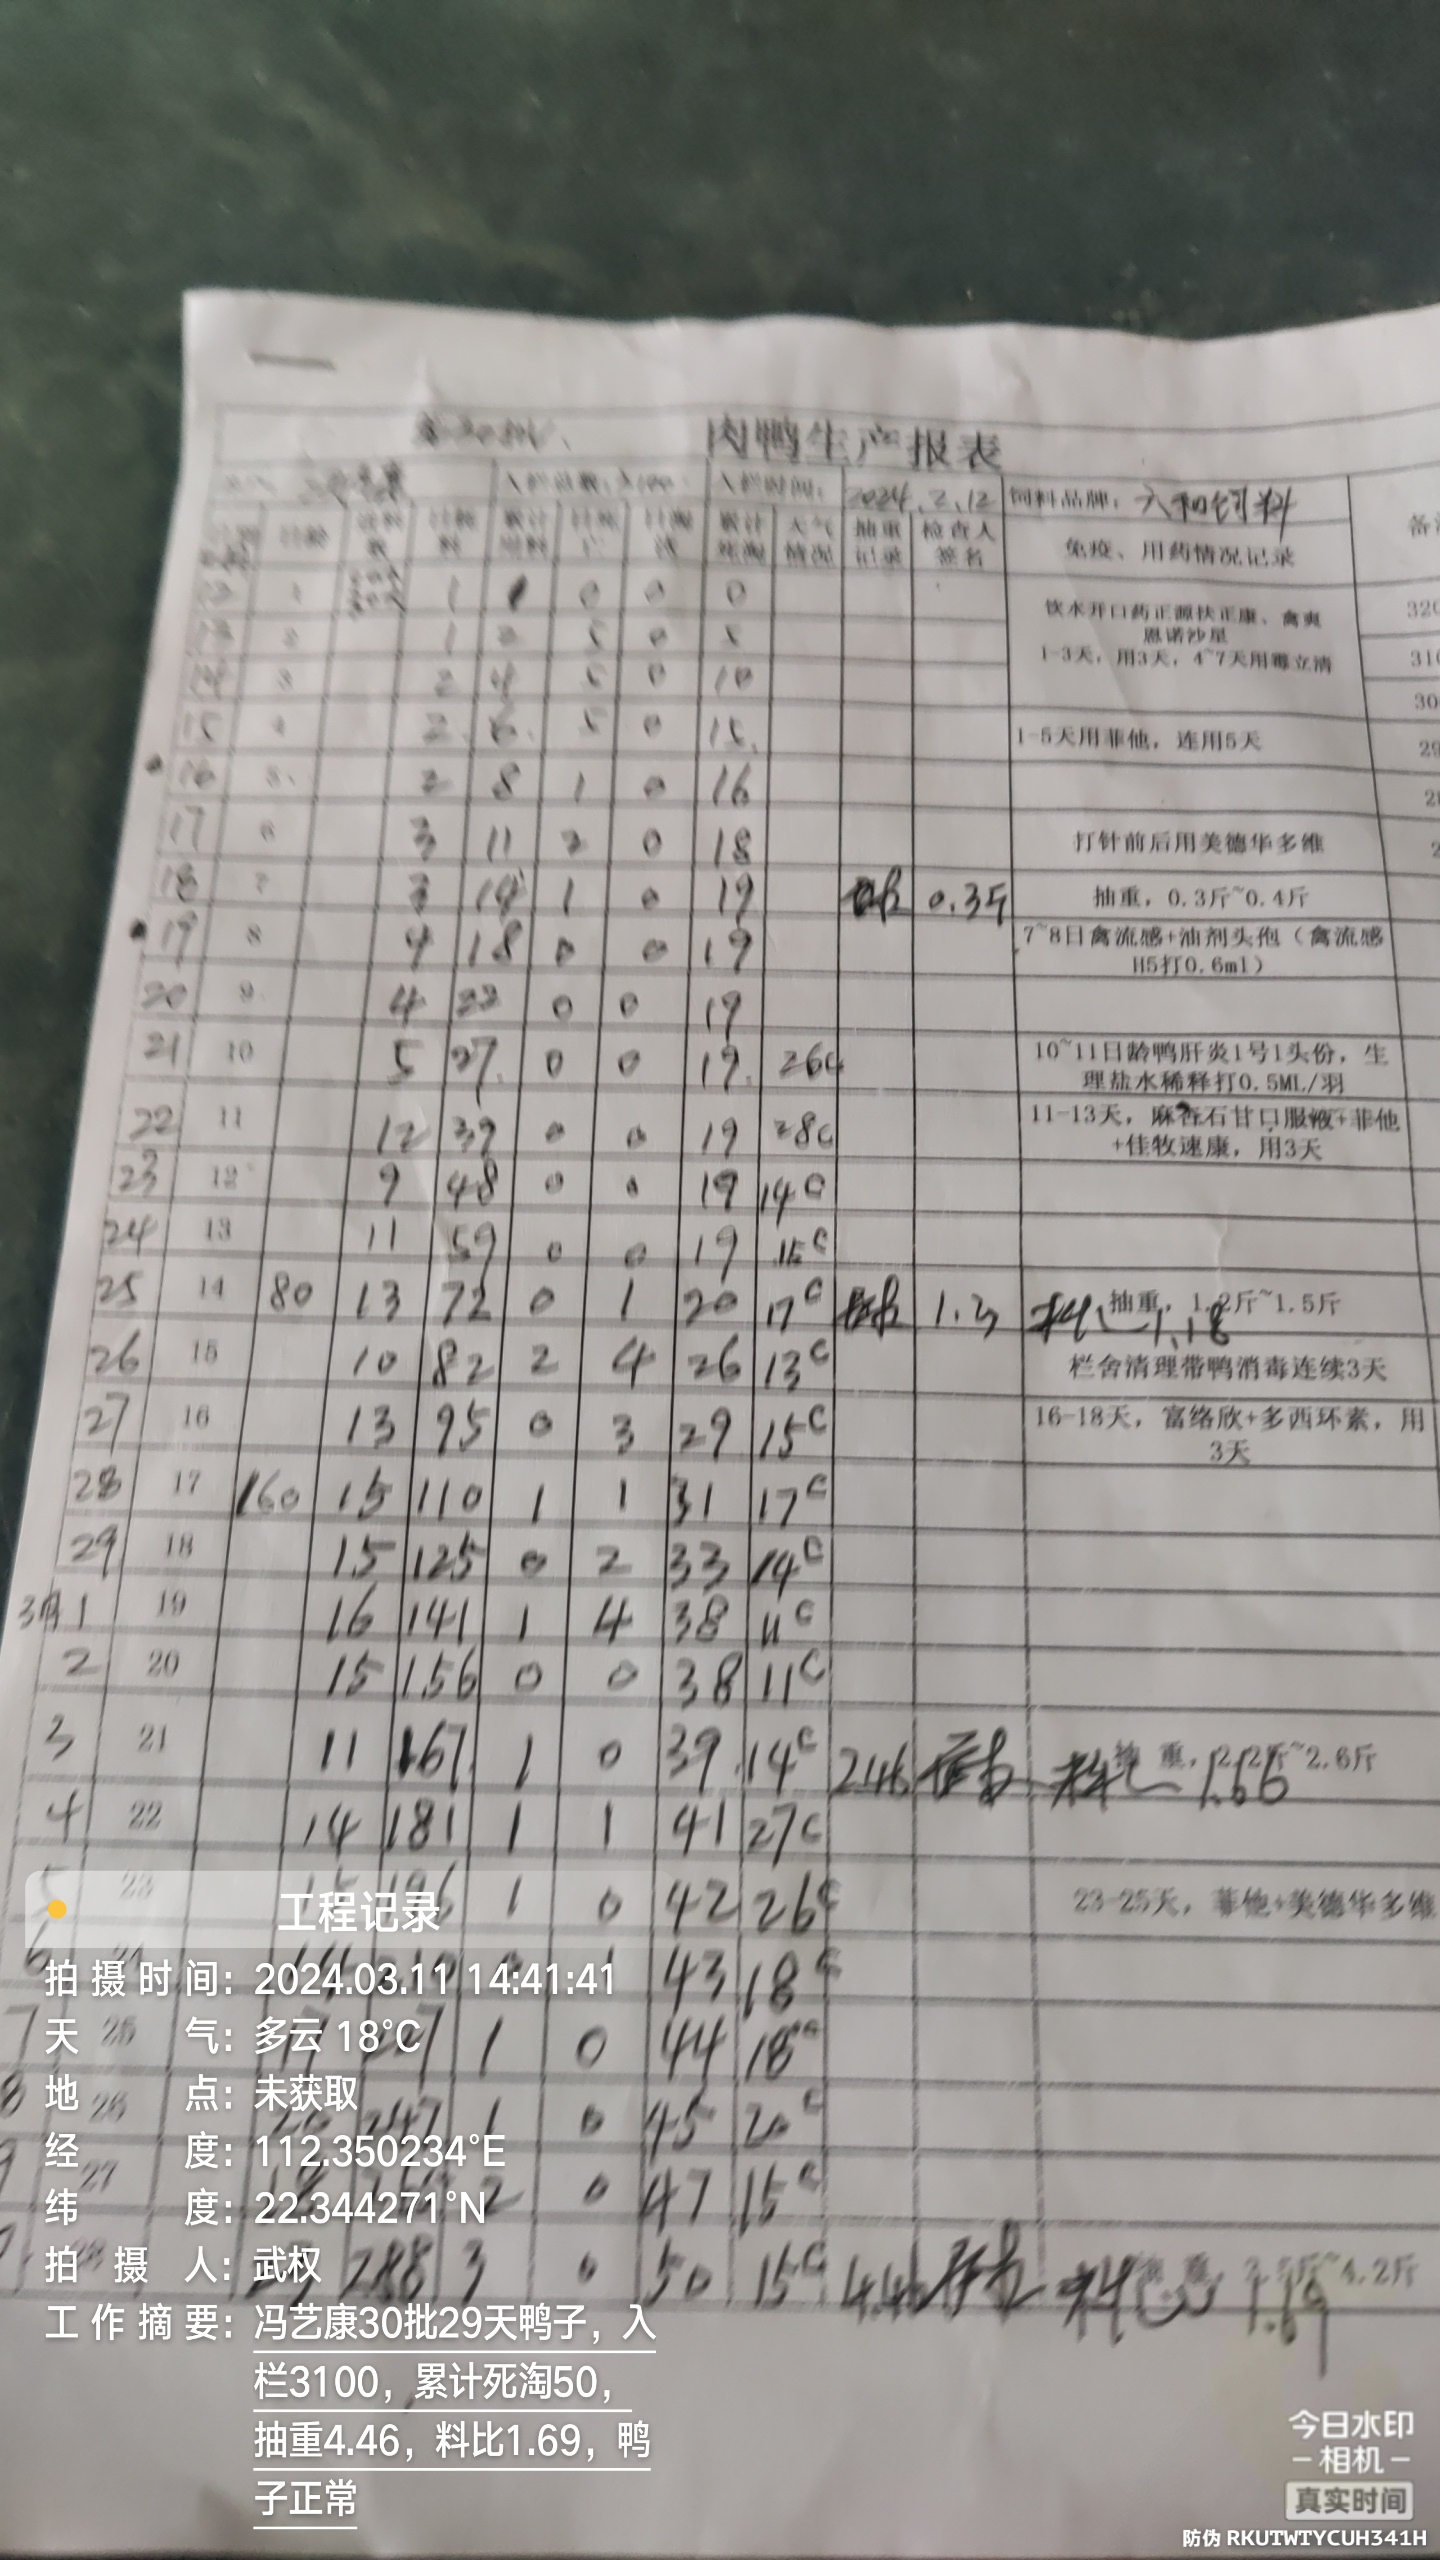 肉鸭生产报表
入栏总数:3100 入栏时间: 2024.2.12 饲料品牌: 六和饲料
日龄 累计 天气情况 抽重记录 检查人签名 免疫、用药情况记录
1 1 1 0 0 0 饮水开口药正源扶正康、禽爽
13 2 1 2 5 0 5 恩诺沙星
1-3天,用3天,4~7天用霉立清
14 3 2 4 5 0 10
15 4 2 6 5 0 15 1-5天用菲他,连用5天
16 5 2 8 1 0 16
17 6 3 11 2 0 18 打针前后用美德华多维
18 7 3 14 1 0 19 0.3斤 抽重,0.3斤~0.4斤
19 8 4 18 0 0 19 7~8日禽流感+油剂头孢(禽流感
H5打0.6ml)
20 9 4 22 0 0 19
21 10 5 27 0 0 19 26C 10~11日龄鸭肝炎1号1头份,生
理盐水稀释打0.5ML/羽
22 11 12 39 0 0 19 28C 11-13天,麻杏石甘口服液+菲他
+佳牧速康,用3天
23 12 9 48 0 0 19 14C
24 13 11 59 0 0 19 15C
25 14 80 13 72 0 1 20 17C 1.3 抽重,1.2斤~1.5斤 1.18
26 15 10 82 2 4 26 13C 栏舍清理带鸭消毒连续3天
27 16 13 95 0 3 29 15C 16-18天,富络欣+多西环素,用
3天
28 17 160 15 110 1 1 31 17C
29 18 15 125 0 2 33 14C
3月1 19 16 141 1 4 38 11C
2 20 15 156 0 0 38 11C
3 21 11 167 1 0 39 14C 2.46 抽重,2.2斤~2.6斤 料比 1.66
4 22 14 181 1 1 41 27C
5 23 15 196 1 0 42 26C 23-25天,菲他+美德华多维
6 43 18C
7 25 1 0 44 18C
8 26 247 1 0 45 20C
9 27 2 0 47 15C
288 3 0 50 15C 4.46 料比 1.69
工程记录
拍摄时间: 2024.03.11 14:41:41
天气: 多云 18°C
地点: 未获取
经度: 112.350234°E
纬度: 22.344271°N
拍摄人: 武权
工作摘要: 冯艺康30批29天鸭子,入
栏3100,累计死淘50,
抽重4.46,料比1.69,鸭
子正常
今日水印
-相机-
真实时间
防伪 RKUTWTYCUH341H